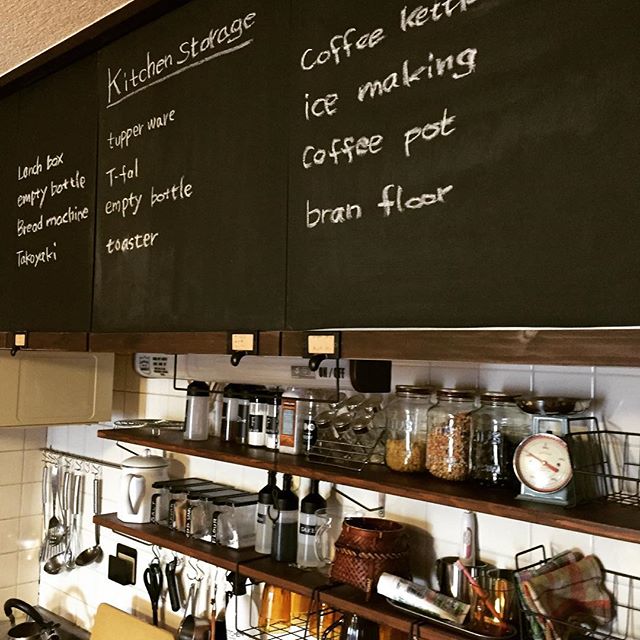 Lanch box
empty bottle
Bread machine
Takoyaki
Kitchen Storage
tupper ware
T-fal
empty bottle
toaster
Coffee kettl
ice making
Coffee pot
bran floor
ON/OFF